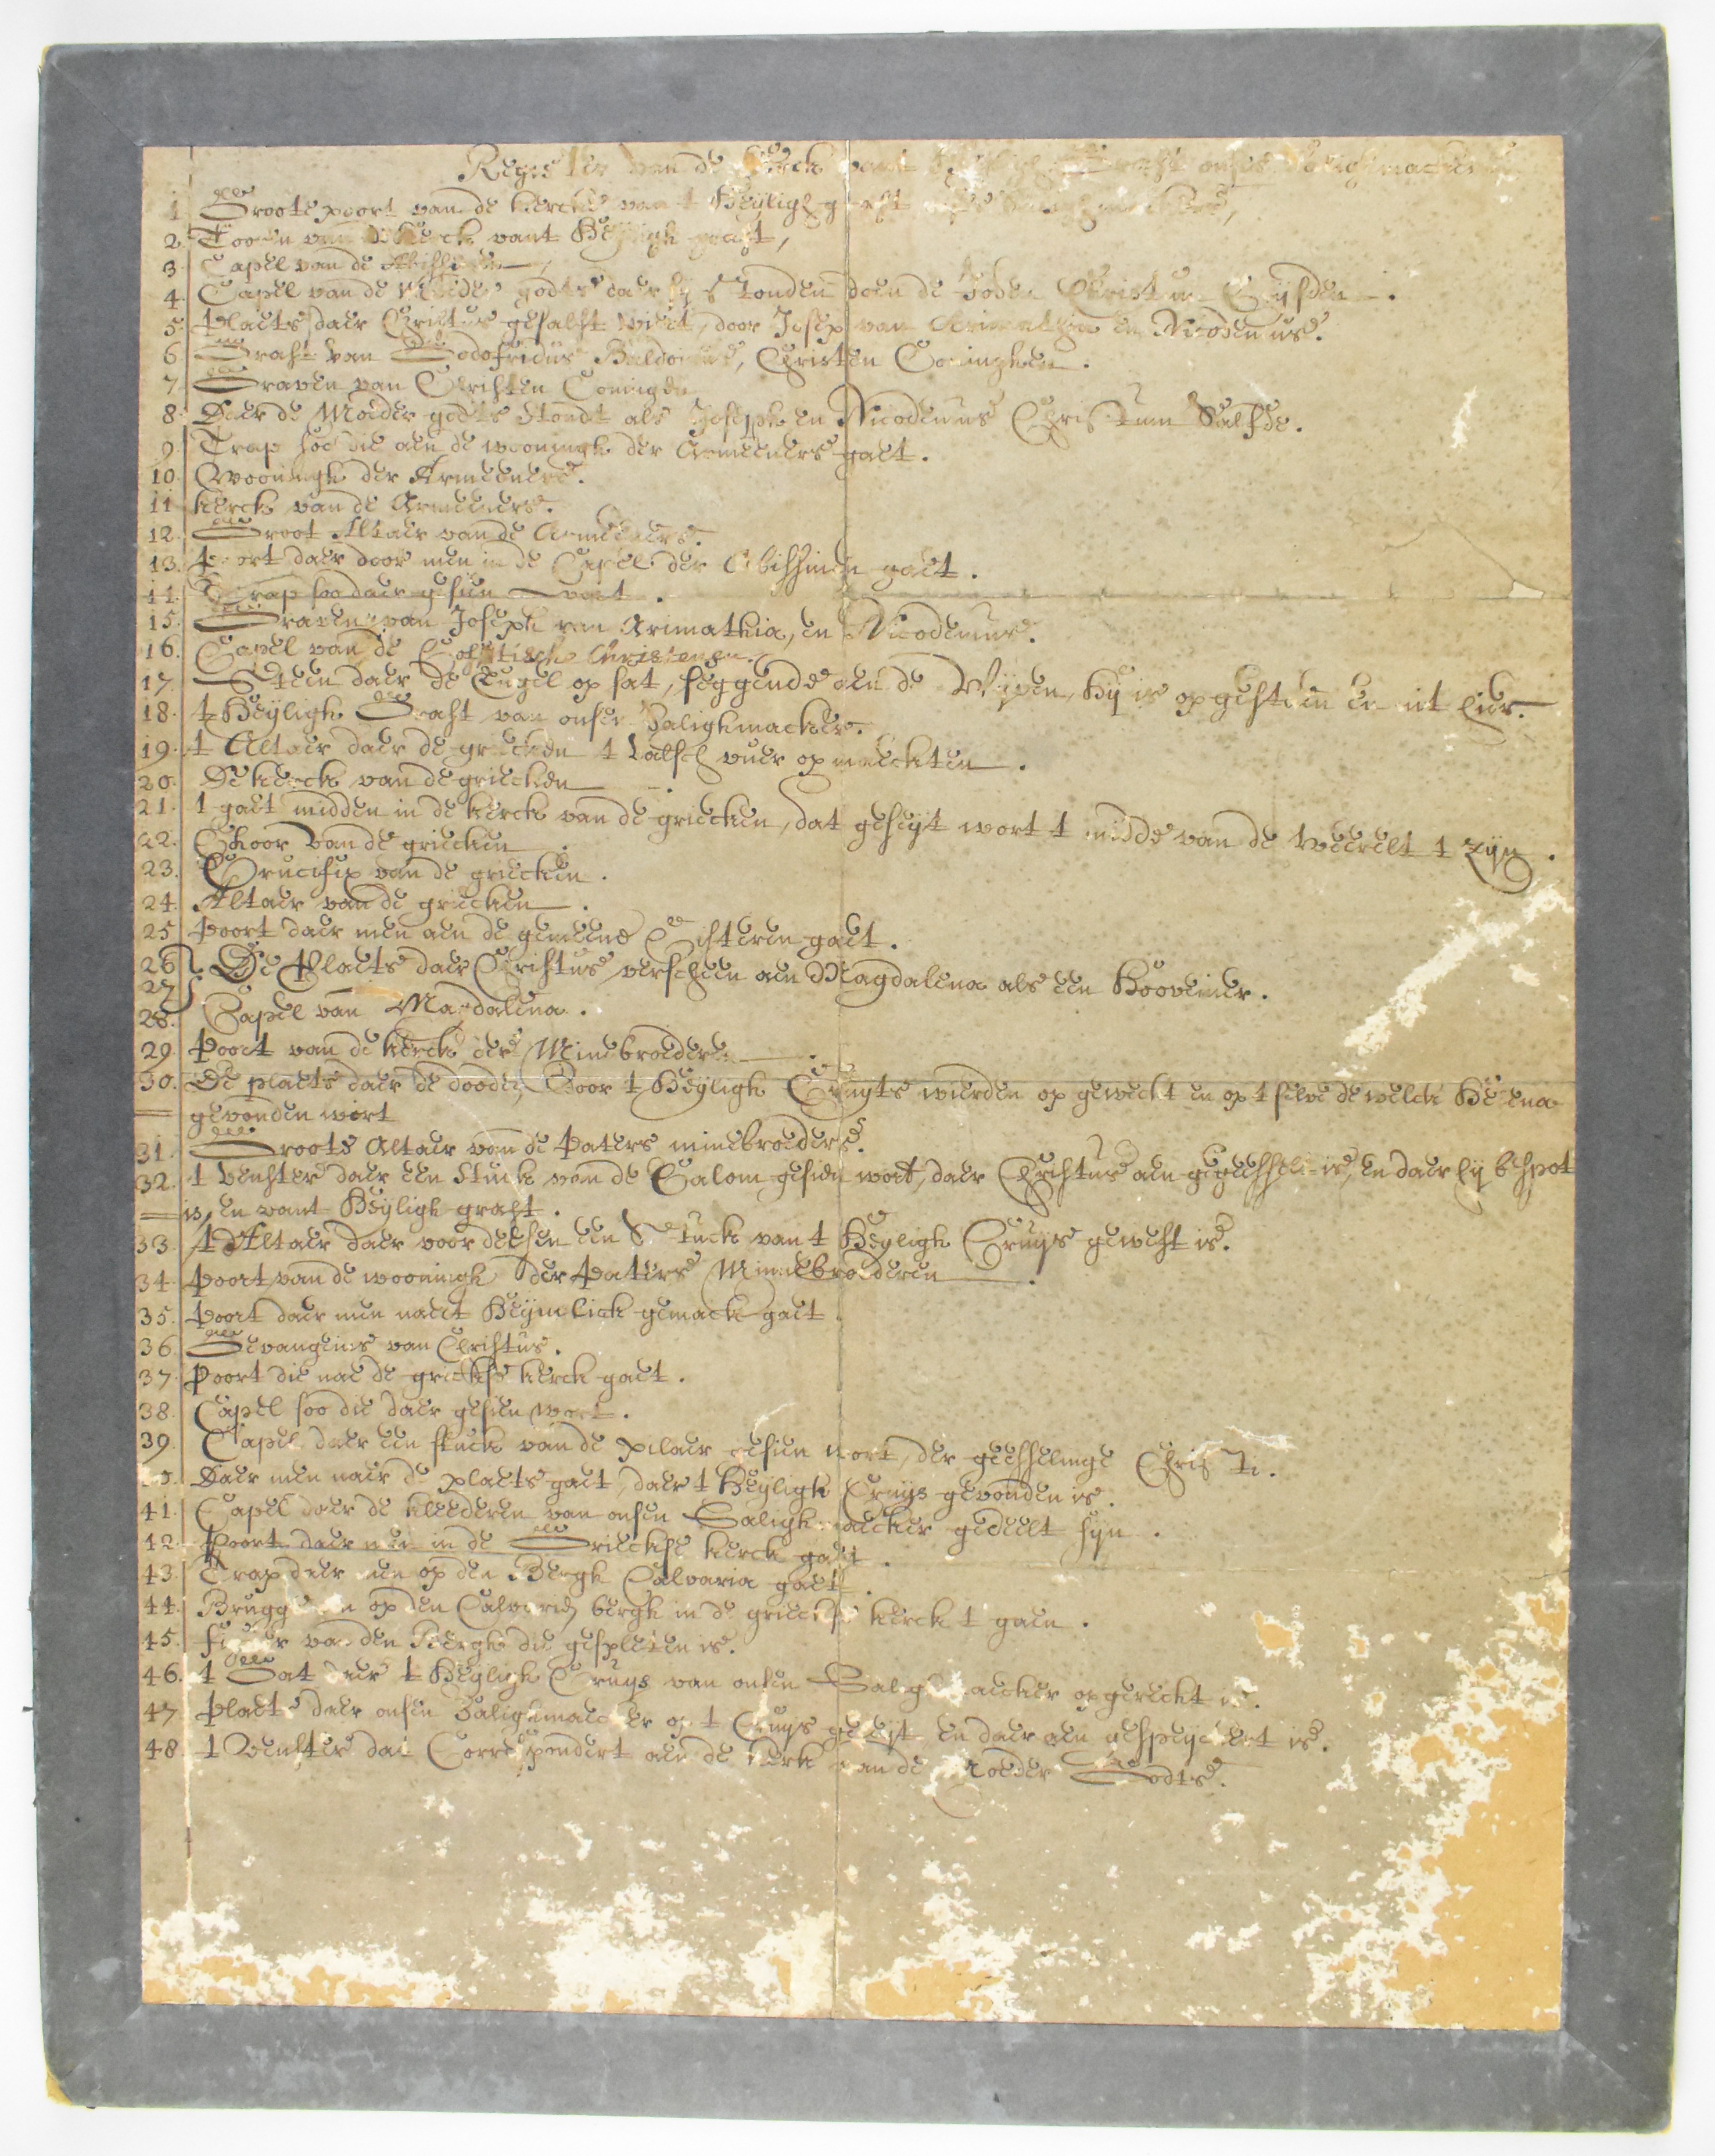 Register van de Kerck vant Heyligh Graft onses Salighmackers
1 Groote poort van de kercke van t Heyligh graft
2. Tooren van de kerck vant Heyligh graft,
3 Capel van de Abissinen,
4. Capel van de Moeder godts daer sy stonden doen de Joden Christum Cruysten.
5 Plaets daer Christus gesalft wiert, door Josep van Arimathia en Nicodemus.
6 Graft van Godofridus Baldoinus, Christen Coninghen.
7. Graven van Christen Coningen
8. Daer de Moeder godts stondt als Joseph en Nicodemus Christum Salfde.
9 Trap soe die aen de wooningh der Armeeners gaet.
10. Wooningh der Armeeners.
11 kerck van de Armeeners.
12. Groot Altaer van de Armeeners.
13. Poort daer door men in de Capel der Abissinen gaet.
14. Trap soo daer gesien wort.
15. Graven van Joseph van Arimathia, en Nicodemus.
16. Capel van de Cofitische Christenen.
17. Steen daer de Engel op sat, seggende aen de Wijven, hy is opgestaen en nit hier.
18. t Heyligh Graft van onsen Salighmacker.
19. t Altaer daer de griecken t valsch vuer op maeckten.
20. De kerck van de griecken.
21. t gaet midden in de kerck van de griecken, dat geseyt wort t midde van de Weerelt t zyn.
22. Choor van de griecken.
23. Crucifix van de griecken.
24. Altaer van de griecken.
25 Poort daer men aen de gemeene Cisteren gaet.
26 De Plaets daer Christus verscheen aen Magdalena als een Hoovenier.
27
28. Capel van Magdalena.
29. Poort van de kerck der Minebroederen.
30. De plaets daer de dooden, door t Heyligh Cruyts wierden op geweckt en op t selve de welck Helena
gevonden wort
31. Groote Altaer van de Paters minebroeders.
32. t venster daer een stuck van de Calom gesien wort, daer Christus aen gegeesselt is, en daer hy bespot
is, en vant Heyligh graft.
33 t Altaer daer voor deesen een Stuck van t Heyligh Cruys geweest is.
34 Poort van de wooningh der Paters Minnebroederen.
35. Poort daer men naert Heymlick gemack gaet
36 Gevangenis van Christus.
37. Poort die nae de griekse kerck gaet.
38. Capel soo die daer gesien wort.
39. Capel daer een stuck van de pilaer gesien wort, der geesselinge Christi.
Daer men naer de plaets gaet, daer t Heyligh Cruys gevonden is.
41. Capel daer de kleederen van onsen Salighmaecker gedeelt syn.
42. Poort daer men in de Grieckse kerck gaet.
43. Trap daer men op den Bergh Calvaria gaet.
44. Brugge om op den Calvarien bergh in de grieckse kerck t gaen.
45. van den Bergh die gespleten is.
46. t Gat daer t Heyligh Cruys van onsen Salighmaecker opgereckt is.
47 Plaets daer onsen Salighmaecker op t Cruys geleyt en daer aen gespeyckert is.
48. t Venster dat Correspondert aen de kerk van de Moeder Godts.